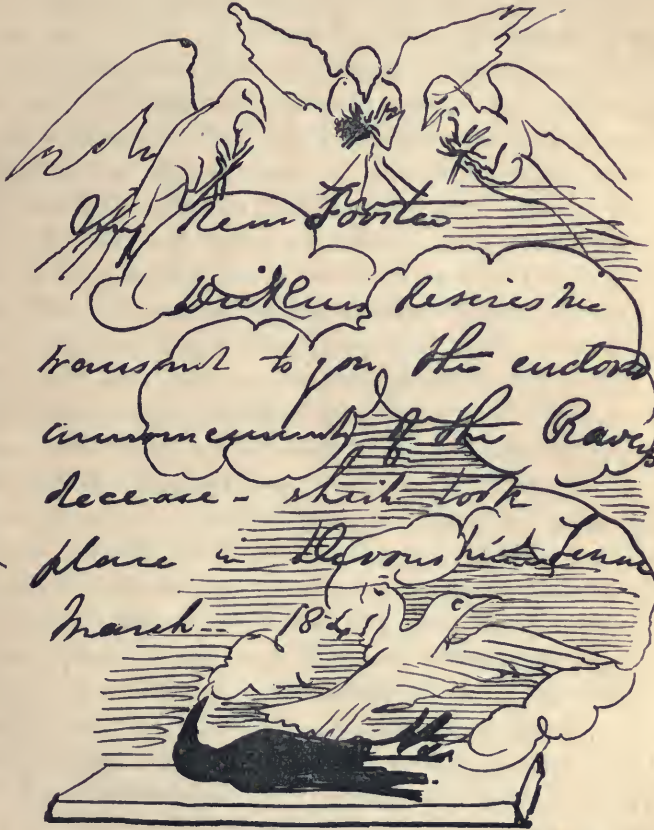 My dear Forster
Dickens desires me
transmit to you the enclosed
announcement of the Raven's
decease - which took
place in Devonshire Terrace
March 1841